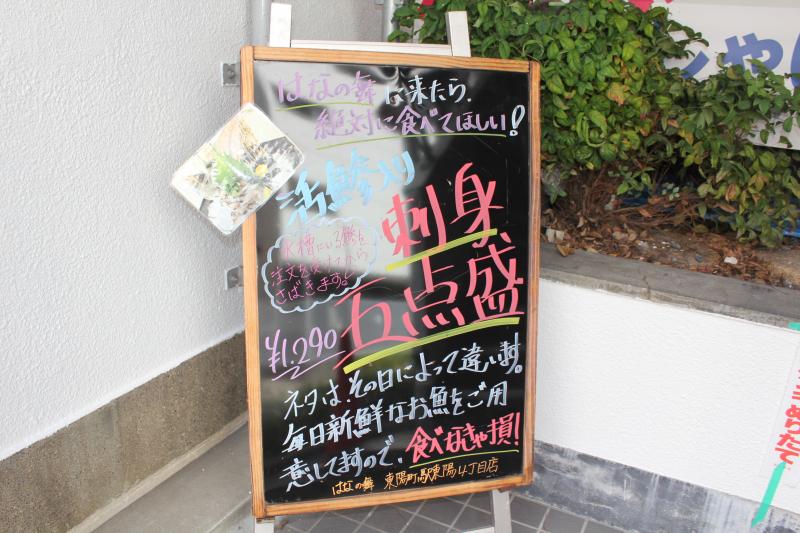 はなの舞に来たら、
絶対に食べてほしい!
活鯵入り
刺身
五点盛
水槽にいる鯵を
注文を受けてから
さばきます。
¥1,290
ネタは、その日によって違います。
毎日新鮮なお魚をご用
意してますので、食べなきゃ損!
はなの舞 東陽町駅東陽4丁目店
ペンキ
ぬりたて